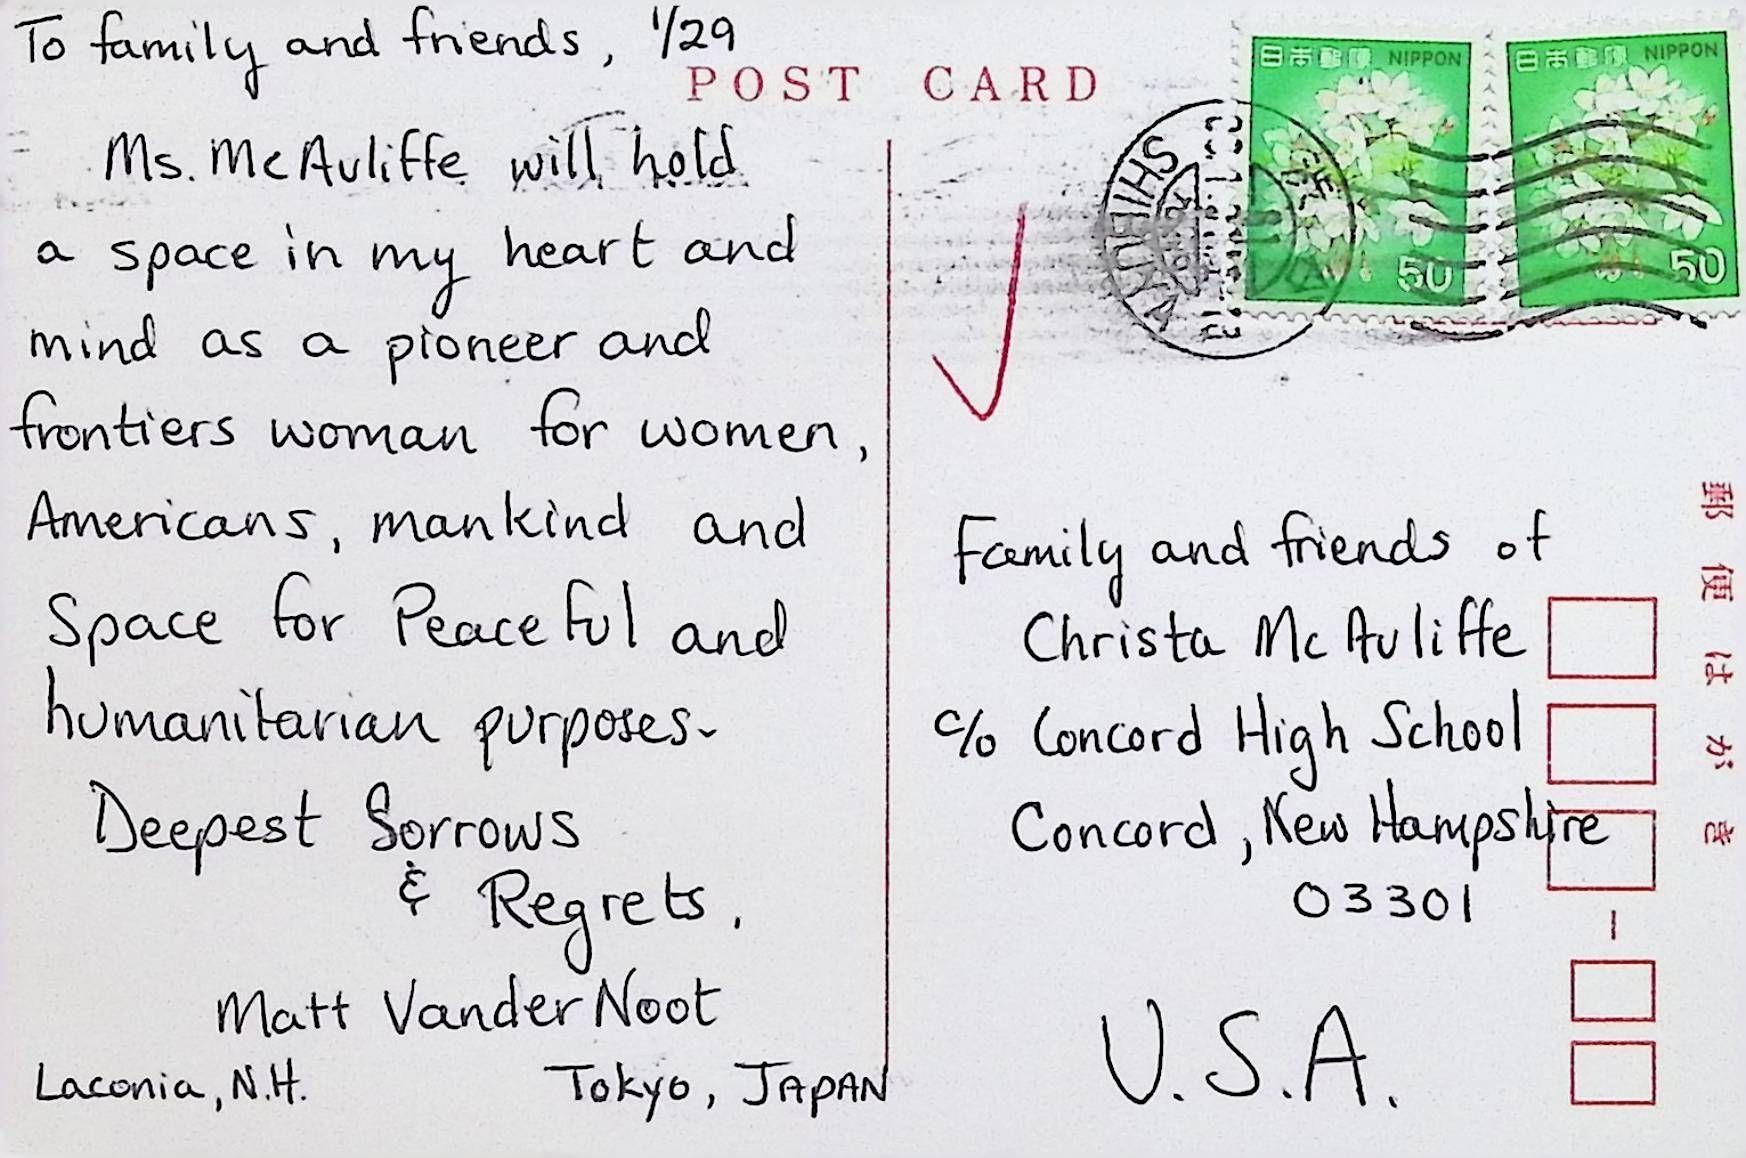 To family and friends, 1/29
Ms. McAuliffe will hold
a space in my heart and
mind as a pioneer and
frontiers woman for women,
Americans, mankind and
Space for Peaceful and
humanitarian purposes.
Deepest Sorrows
& Regrets.
Matt VanderNoot
Laconia, N.H. Tokyo, JAPAN
POST CARD
日本郵便 NIPPON
50
日本郵便 NIPPON
50
Family and friends of
Christa McAuliffe
c/o Concord High School
Concord, New Hampshire
03301
U.S.A.
郵便はがき